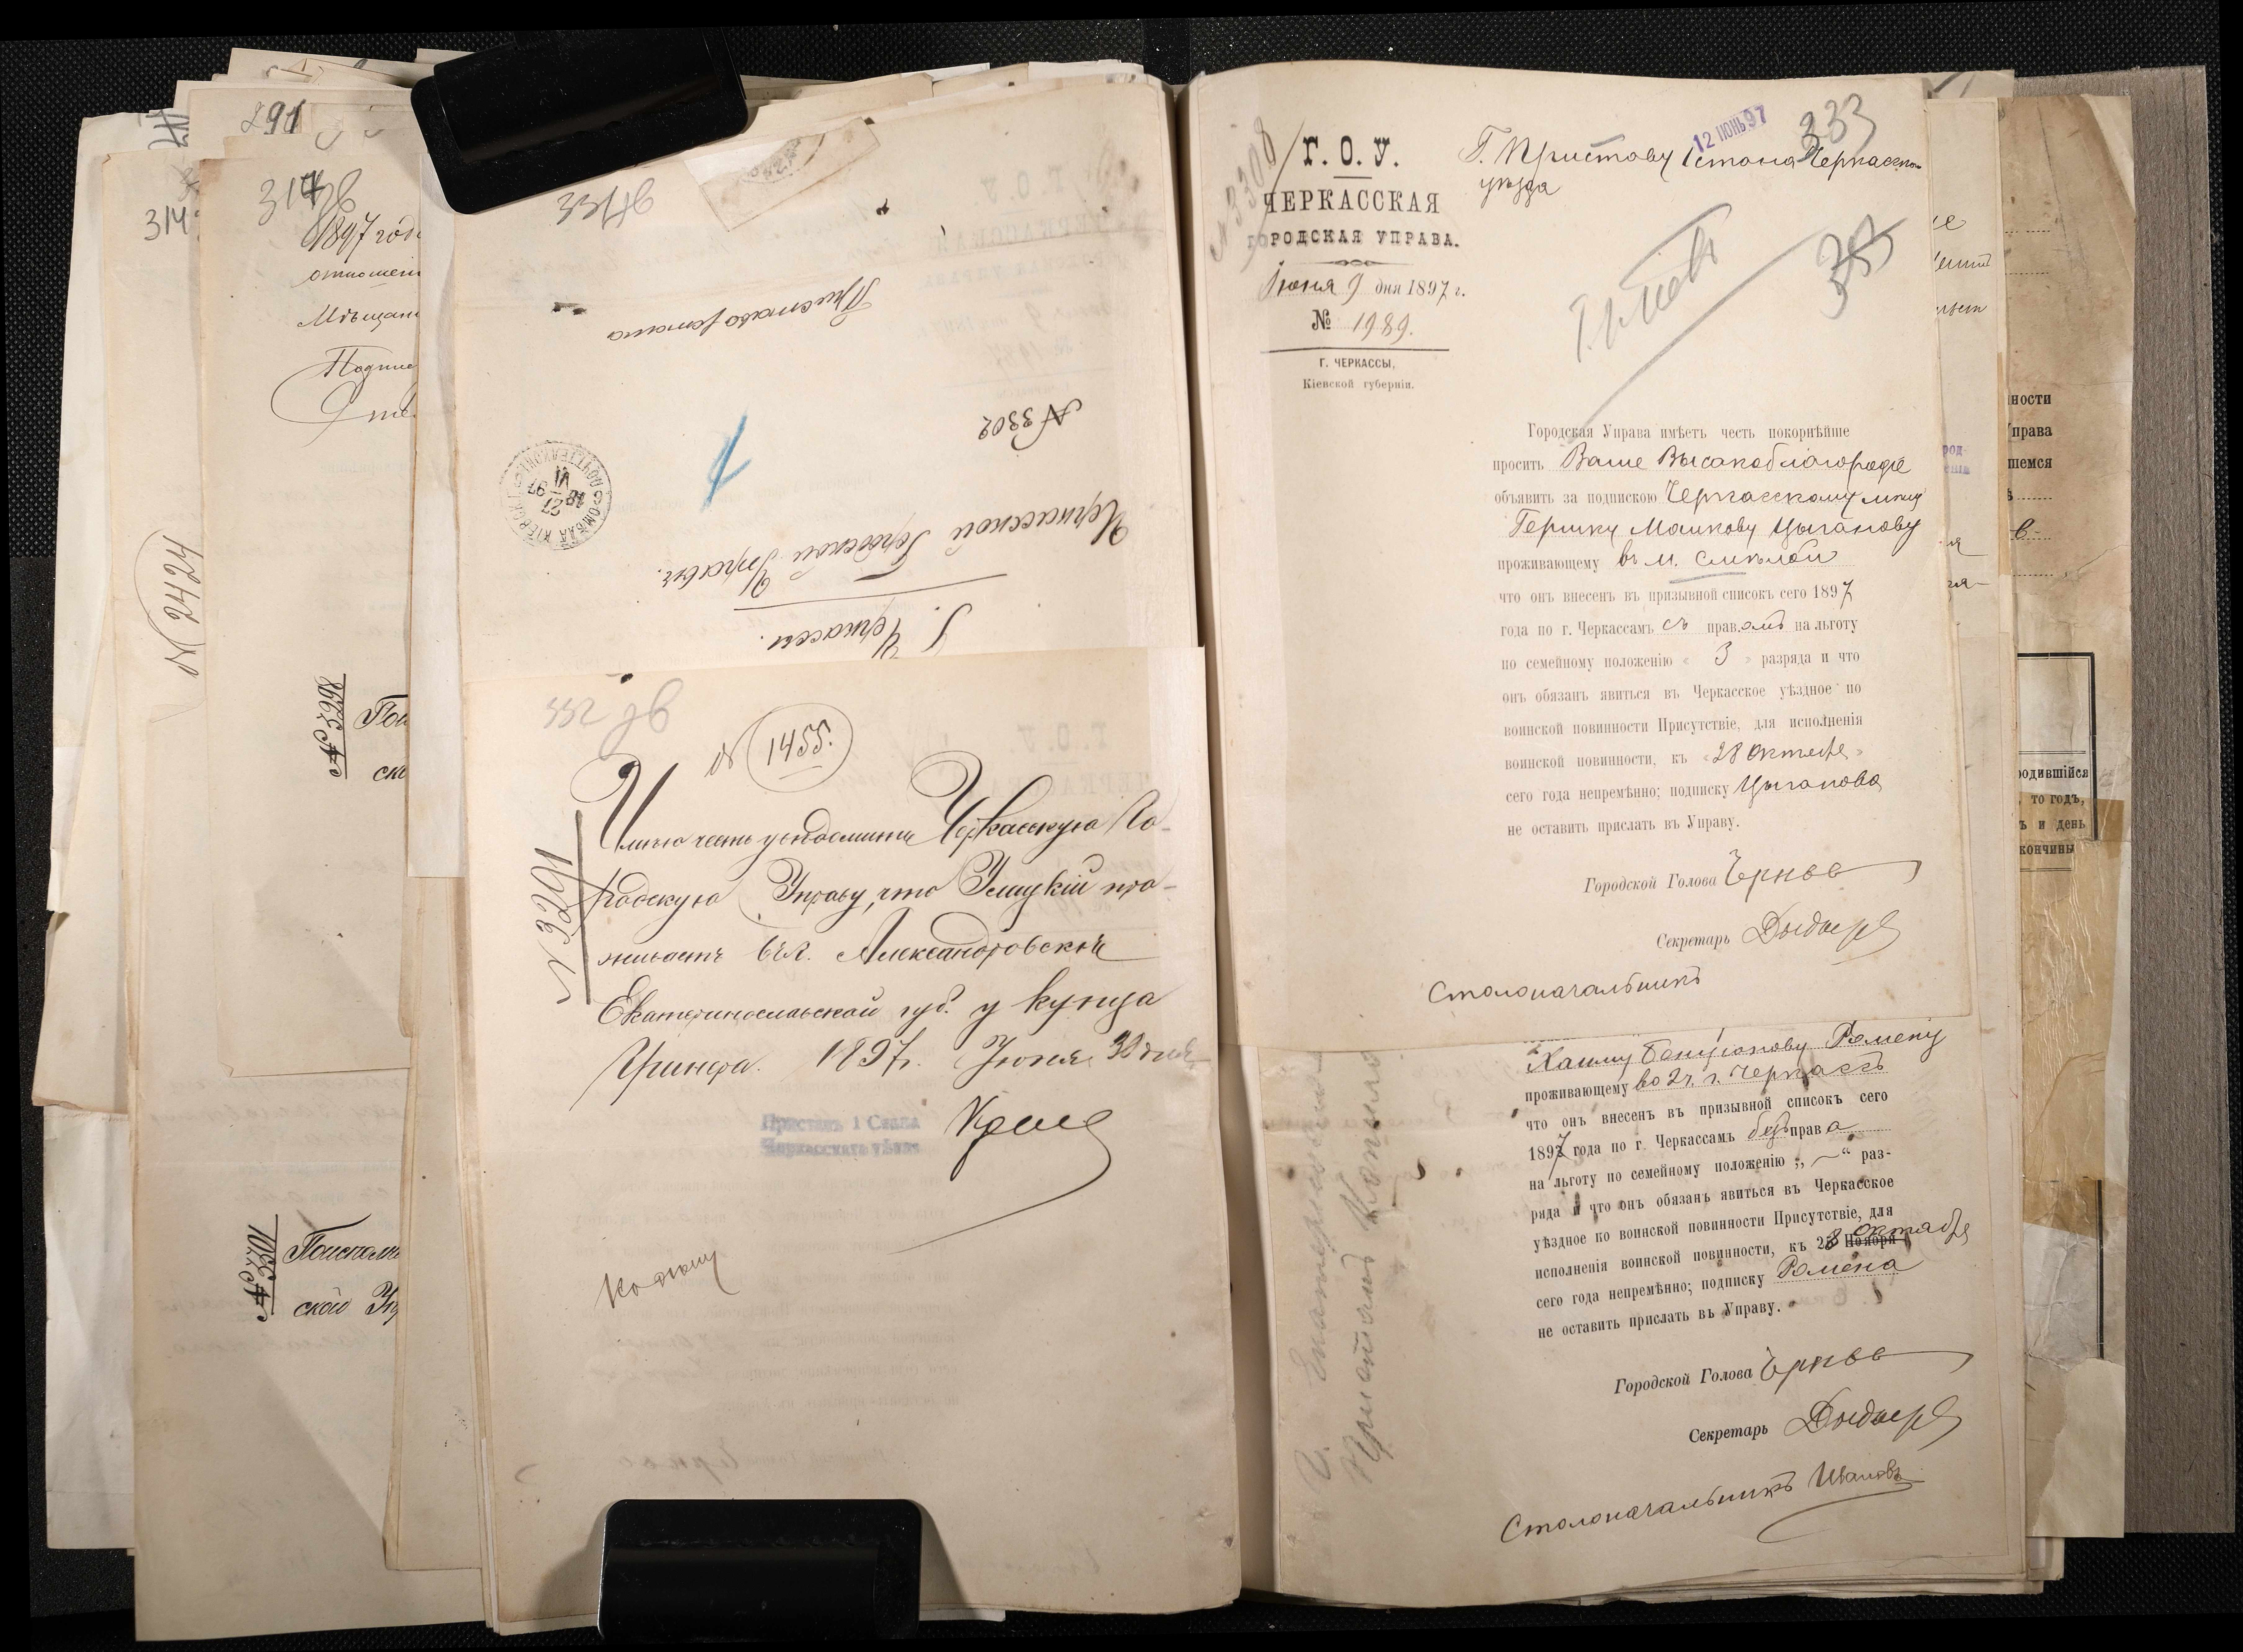 291
314
317 об
1897 год
отношен
Мѣщан
№ 2424
№ 3298
Пои
ск
№ 3301
ского Уп
331 об
Приставъ 1 стана
№ 3302
Черкасской Городской Управѣ.
Г. Черкассы.
332 об
№ 1455.
№ 3291
Имѣю честь увѣдомить Черкасскую Го-
родскую Управу, что Усицкій про-
живаетъ въ г. Александровскѣ
Екатеринославской губ. у купца
1897 г. Іюня 30 дня
Приставъ 1 Стана
Черкасскаго уѣзда
Къ дѣлу
12 ІЮНЬ 97
333
№ 3308
Г. О. У.
ЧЕРКАССКАЯ
ГОРОДСКАЯ УПРАВА.
Іюня 9 дня 1897 г.
№ 1989.
Г. ЧЕРКАССЫ,
Кіевской губерніи.
Г. Приставу 1 стана Черкасскаго
уѣзда
Городская Управа имѣетъ честь покорнѣйше
просить Ваше Высокоблагородіе
объявить за подпискою Черкасскому мѣщ
Гершку Мошкову Цыганову
проживающему въ м. Смѣлой
что онъ внесенъ въ призывной списокъ сего 1897
года по г. Черкассамъ съ правомъ на льготу
по семейному положенію « 3 » разряда и что
онъ обязанъ явиться въ Черкасское уѣздное по
воинской повинности Присутствіе, для исполненія
воинской повинности, къ «28 Октября»
сего года непремѣнно; подписку Цыганова
не оставить прислать въ Управу.
Городской Голова
Секретарь
Столоначальникъ
Хаиму Ромену
проживающему во 2 ч. г. Черкассъ
что онъ внесенъ въ призывной списокъ сего
1897 года по г. Черкассамъ безъ права
на льготу по семейному положенію „ — “ раз-
ряда и что онъ обязанъ явиться въ Черкасское
уѣздное по воинской повинности Присутствіе, для
исполненія воинской повинности, къ 28 Ноября Октября
сего года непремѣнно; подписку Ромена
не оставить прислать въ Управу.
Городской Голова
Секретарь
Столоначальникъ Ивановъ
ности
Управа
шемся
родившійся
то годъ,
ъ и день
кончины